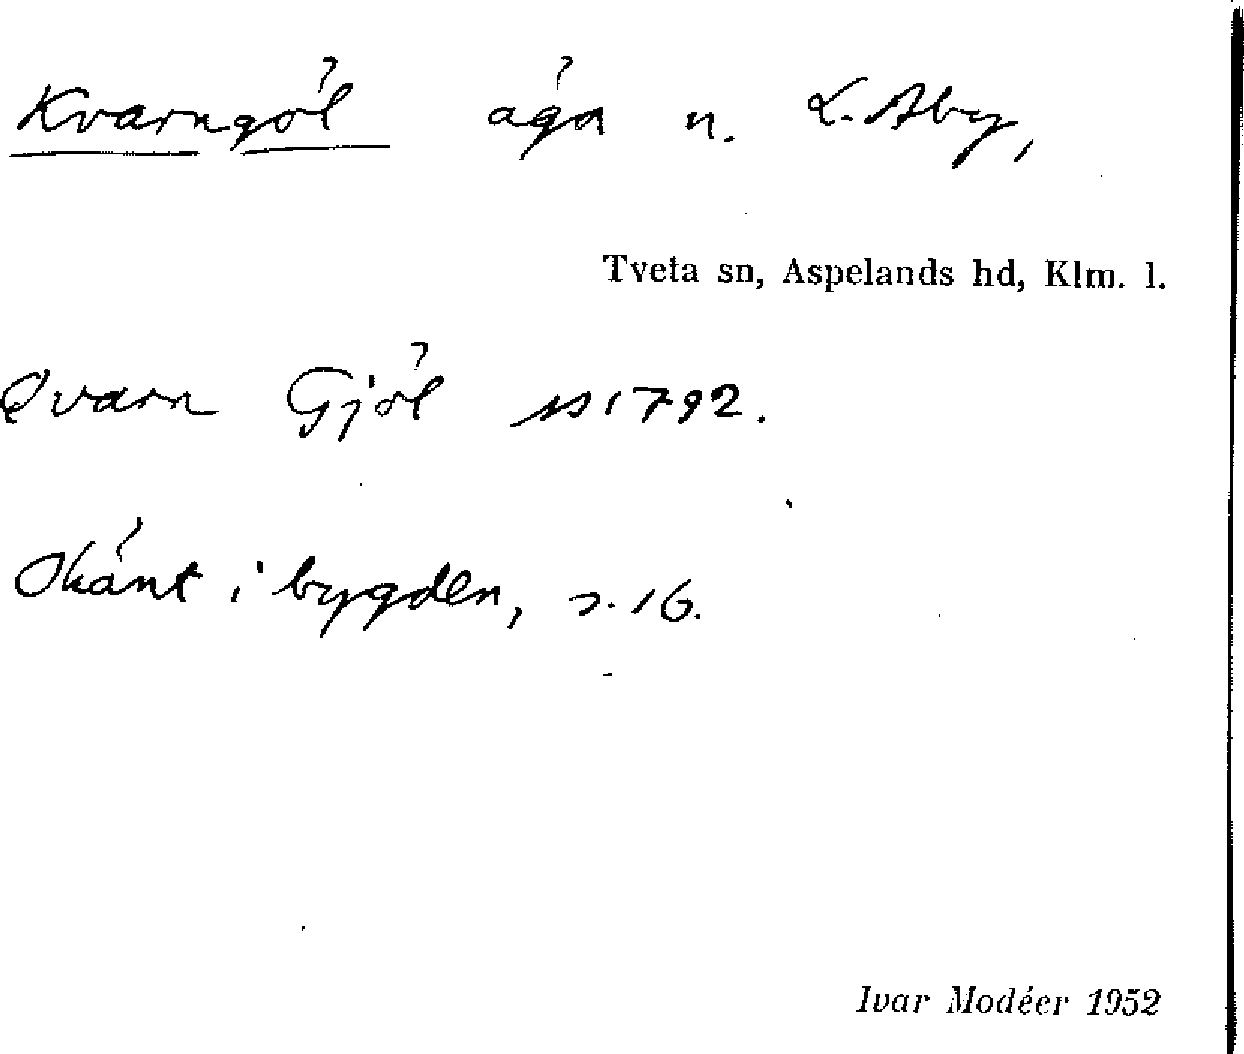 Kvarngöl äga n. L. Åby,
Tveta sn, Aspelands hd, Klm. l.
Qvarn Gjöl 1792.
Okänt i bygden, s. 16.
Ivar Modéer 1952